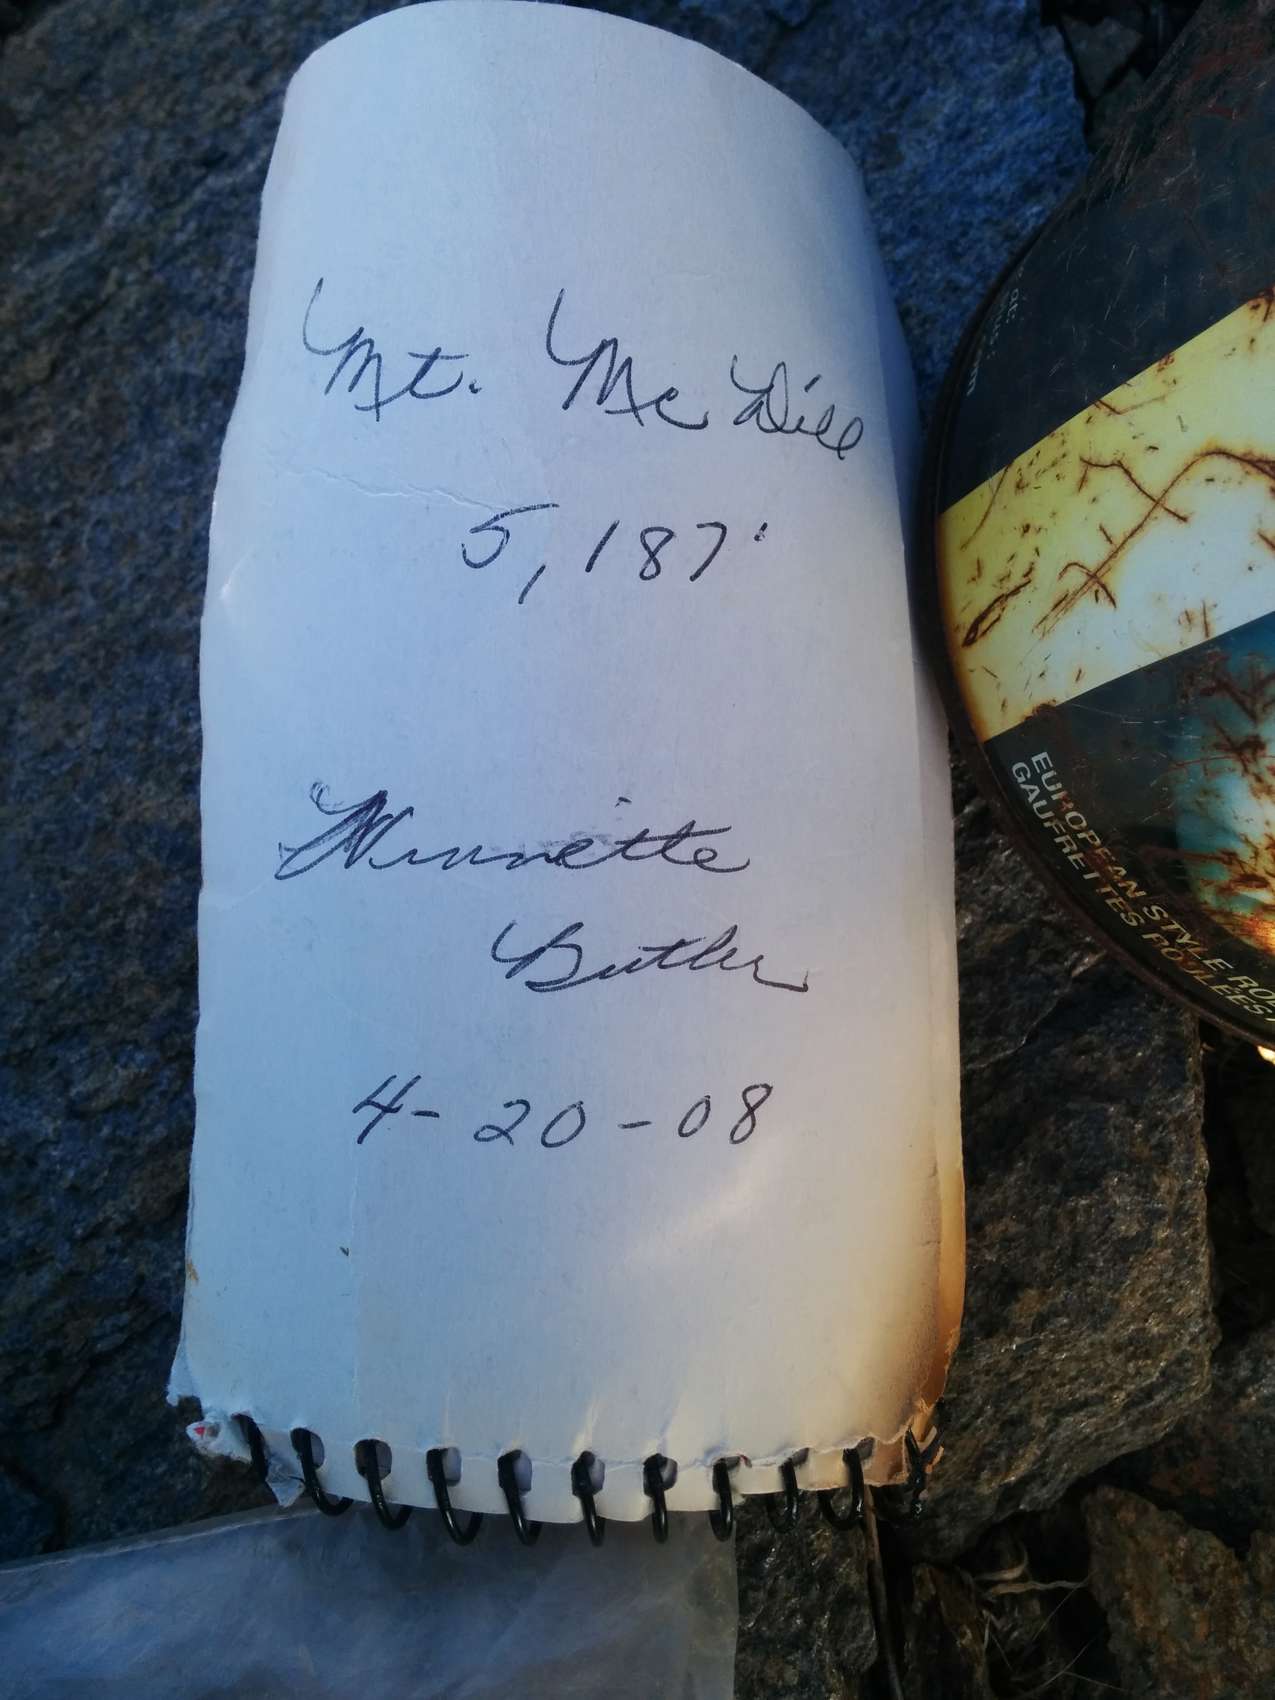 Mt. McDill
5,187'
Winnette
Butler
4-20-08
EUROPEAN STYLE
GAUFRETTES ROULEES